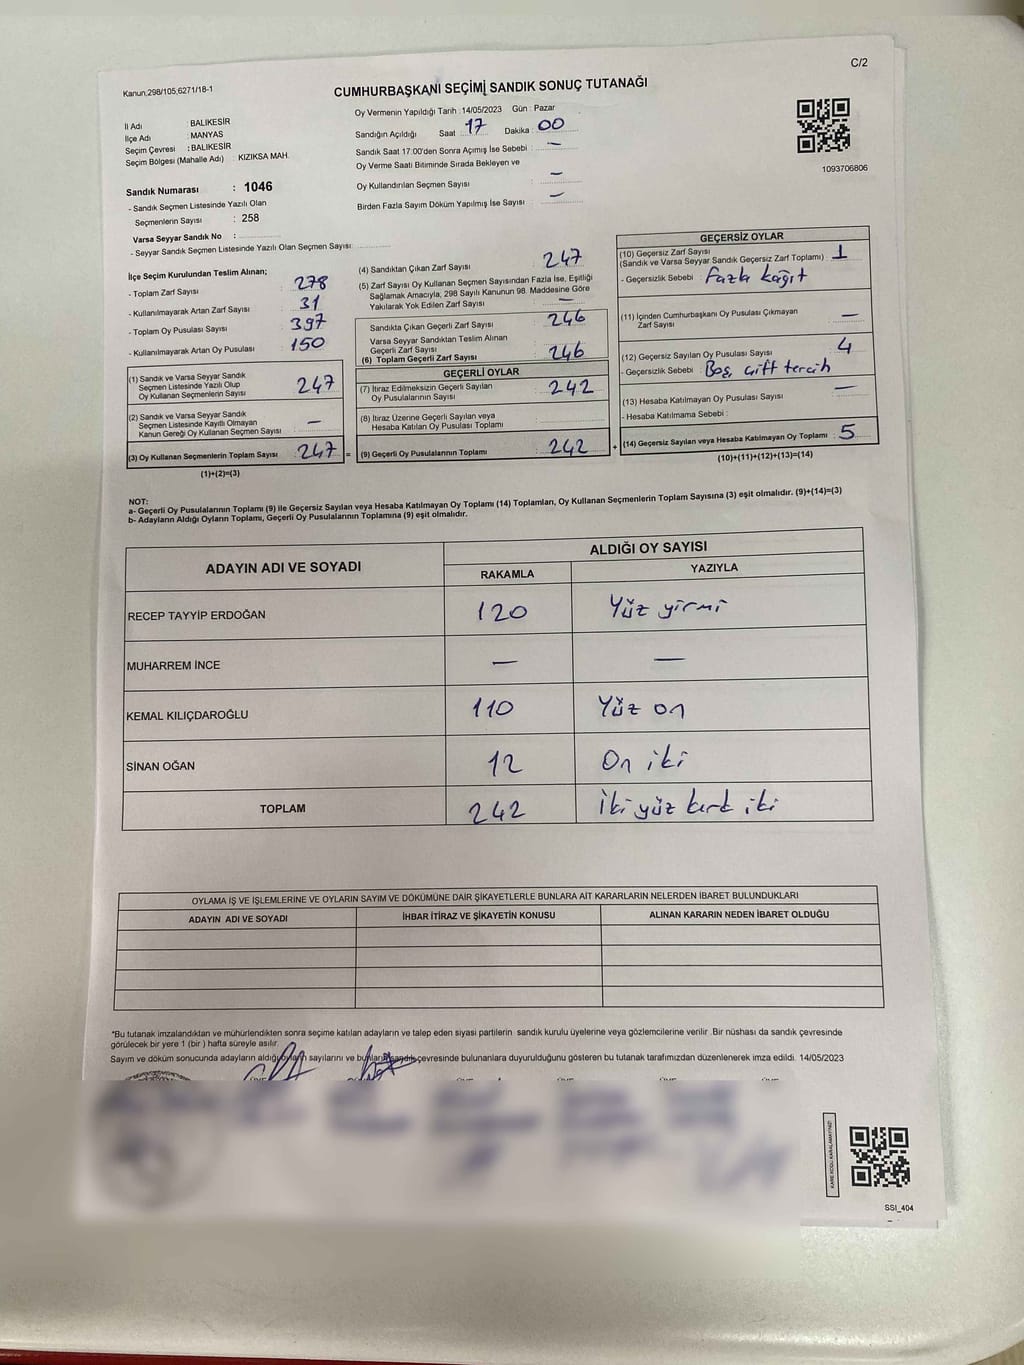 C/2
Kanun,298/105,6271/18-1
CUMHURBAŞKANI SEÇİMİ SANDIK SONUÇ TUTANAĞI
İl Adı : BALIKESİR
İlçe Adı : MANYAS
Seçim Çevresi : BALIKESİR
Seçim Bölgesi (Mahalle Adı) : KIZIKSA MAH.
Sandık Numarası : 1046
- Sandık Seçmen Listesinde Yazılı Olan
Seçmenlerin Sayısı : 258
Varsa Seyyar Sandık No :
- Seyyar Sandık Seçmen Listesinde Yazılı Olan Seçmen Sayısı:
Oy Vermenin Yapıldığı Tarih : 14/05/2023 Gün : Pazar
Sandığın Açıldığı Saat : 17 Dakika : 00
Sandık Saat 17:00'den Sonra Açımış İse Sebebi : —
Oy Verme Saati Bitiminde Sırada Bekleyen ve
Oy Kullandırılan Seçmen Sayısı : —
Birden Fazla Sayım Döküm Yapılmış İse Sayısı : —
1093706806
İlçe Seçim Kurulundan Teslim Alınan;
- Toplam Zarf Sayısı : 278
- Kullanılmayarak Artan Zarf Sayısı : 31
- Toplam Oy Pusulası Sayısı : 397
- Kullanılmayarak Artan Oy Pusulası : 150
(1) Sandık ve Varsa Seyyar Sandık
Seçmen Listesinde Yazılı Olup
Oy Kullanan Seçmenlerin Sayısı : 247
(2) Sandık ve Varsa Seyyar Sandık
Seçmen Listesinde Kayıtlı Olmayan
Kanun Gereği Oy Kullanan Seçmen Sayısı : —
(3) Oy Kullanan Seçmenlerin Toplam Sayısı : 247 =
(1)+(2)=(3)
(4) Sandıktan Çıkan Zarf Sayısı : 247
(5) Zarf Sayısı Oy Kullanan Seçmen Sayısından Fazla İse, Eşitliği
Sağlamak Amacıyla, 298 Sayılı Kanunun 98. Maddesine Göre
Yakılarak Yok Edilen Zarf Sayısı : —
Sandıkta Çıkan Geçerli Zarf Sayısı : 246
Varsa Seyyar Sandıktan Teslim Alınan
Geçerli Zarf Sayısı :
(6) Toplam Geçerli Zarf Sayısı : 246
GEÇERLİ OYLAR
(7) İtiraz Edilmeksizin Geçerli Sayılan
Oy Pusulasının Sayısı : 242
(8) İtiraz Üzerine Geçerli Sayılan veya
Hesaba Katılan Oy Pusulası Toplamı :
(9) Geçerli Oy Pusulalarının Toplamı : 242 +
GEÇERSİZ OYLAR
(10) Geçersiz Zarf Sayısı
(Sandık ve Varsa Seyyar Sandık Geçersiz Zarf Toplamı) : 1
- Geçersizlik Sebebi : Fazla kağıt
(11) İçinden Cumhurbaşkanı Oy Pusulası Çıkmayan
Zarf Sayısı : —
(12) Geçersiz Sayılan Oy Pusulası Sayısı : 4
- Geçersizlik Sebebi : Boş, çift tercih
(13) Hesaba Katılmayan Oy Pusulası Sayısı : —
- Hesaba Katılmama Sebebi :
(14) Geçersiz Sayılan veya Hesaba Katılmayan Oy Toplamı : 5
(10)+(11)+(12)+(13)=(14)
NOT:
a- Geçerli Oy Pusulalarının Toplamı (9) ile Geçersiz Sayılan veya Hesaba Katılmayan Oy Toplamı (14) Toplamları, Oy Kullanan Seçmenlerin Toplam Sayısına (3) eşit olmalıdır. (9)+(14)=(3)
b- Adayların Aldığı Oyların Toplamı, Geçerli Oy Pusulalarının Toplamına (9) eşit olmalıdır.
ADAYIN ADI VE SOYADI ALDIĞI OY SAYISI
RAKAMLA YAZIYLA
RECEP TAYYİP ERDOĞAN 120 Yüz yirmi
MUHARREM İNCE — —
KEMAL KILIÇDAROĞLU 110 Yüz on
SİNAN OĞAN 12 On iki
TOPLAM 242 İki yüz kırk iki
OYLAMA İŞ VE İŞLEMLERİNE VE OYLARIN SAYIM VE DÖKÜMÜNE DAİR ŞİKAYETLERLE BUNLARA AİT KARARLARIN NELERDEN İBARET BULUNDUKLARI
ADAYIN ADI VE SOYADI İHBAR İTİRAZ VE ŞİKAYETİN KONUSU ALINAN KARARIN NEDEN İBARET OLDUĞU
*Bu tutanak imzalandıktan ve mühürlendikten sonra seçime katılan adayların ve talep eden siyasi partilerin sandık kurulu üyelerine veya gözlemcilerine verilir .Bir nüshası da sandık çevresinde
görülecek bir yere 1 (bir ) hafta süreyle asılır.
Sayım ve döküm sonucunda adayların aldığı oyların sayılarını ve bunların sandık çevresinde bulunanlara duyurulduğunu gösteren bu tutanak tarafımızdan düzenlenerek imza edildi. 14/05/2023
KARE KODU KARALAMAYINIZ!
SSI_404